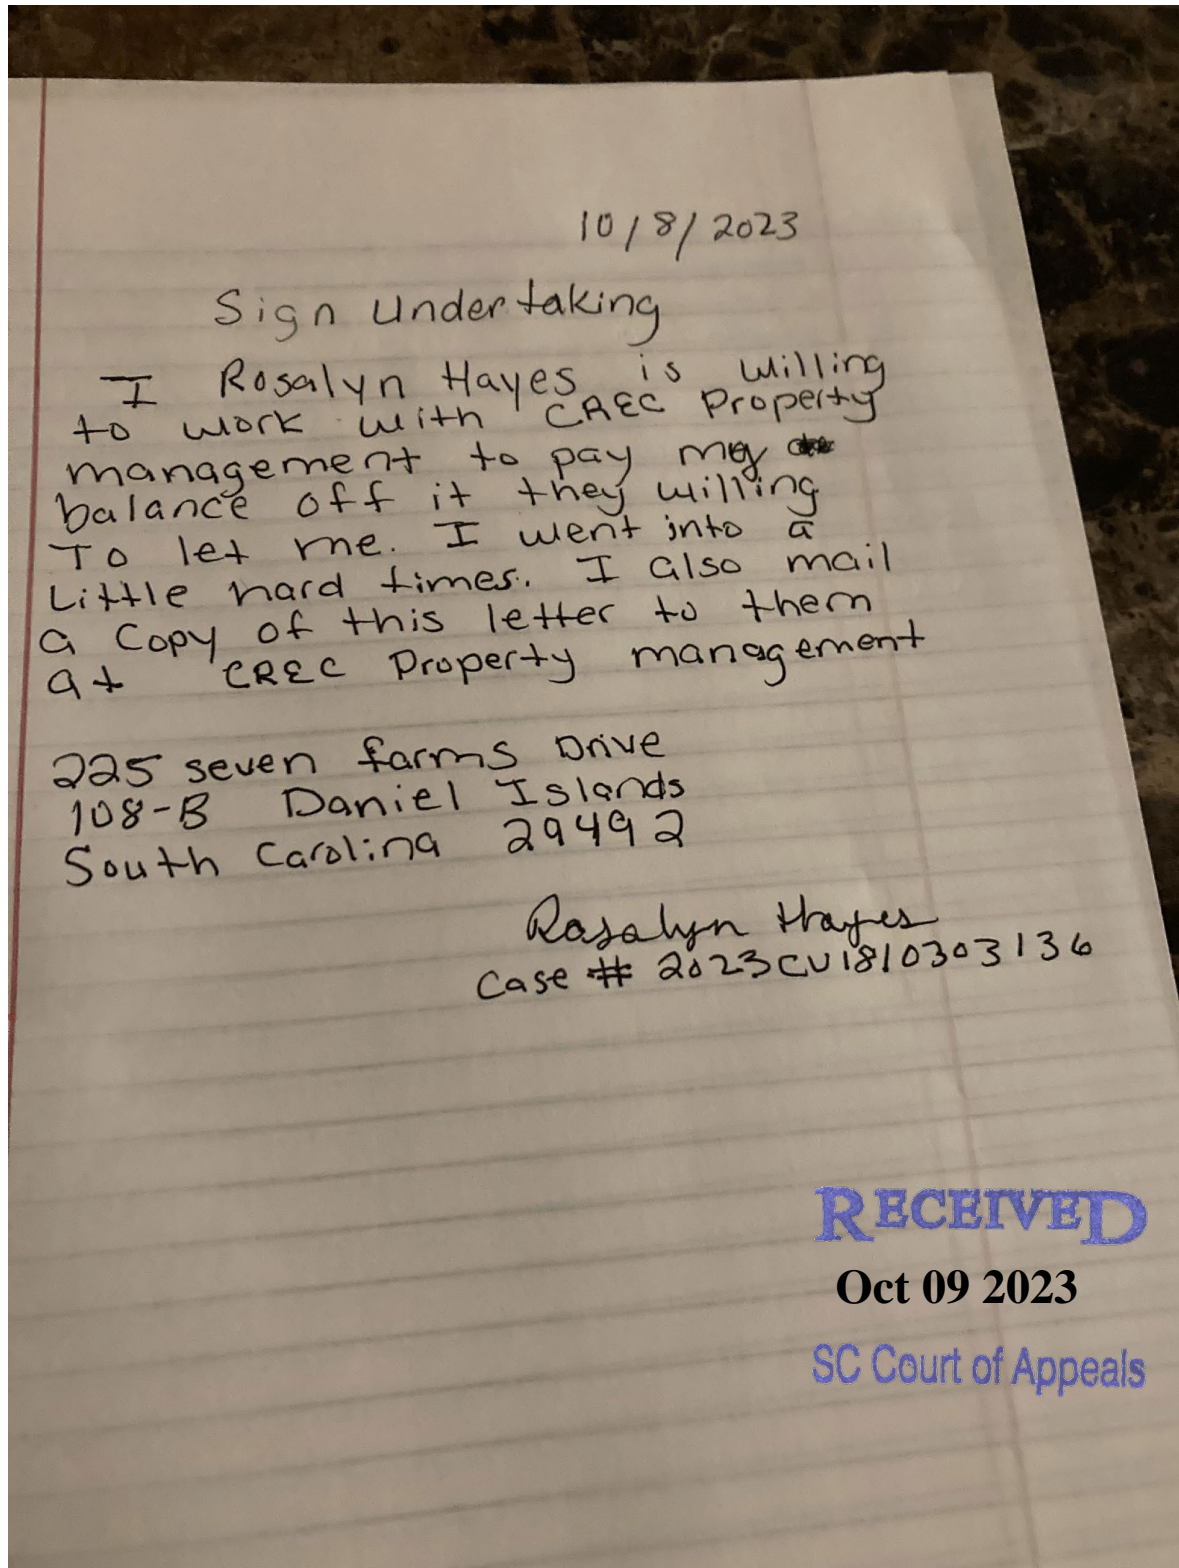 10/8/2023
Sign Undertaking
I Rosalyn Hayes is willing
to work with CREC Property
management to pay my
balance off it they willing
To let me. I went into a
Little hard times. I also mail
a copy of this letter to them
at CREC Property management
225 seven farms Drive
108-B Daniel Islands
South Carolina 29492
Rosalyn Hayes
Case # 2023CV1810303136
RECEIVED
Oct 09 2023
SC Court of Appeals